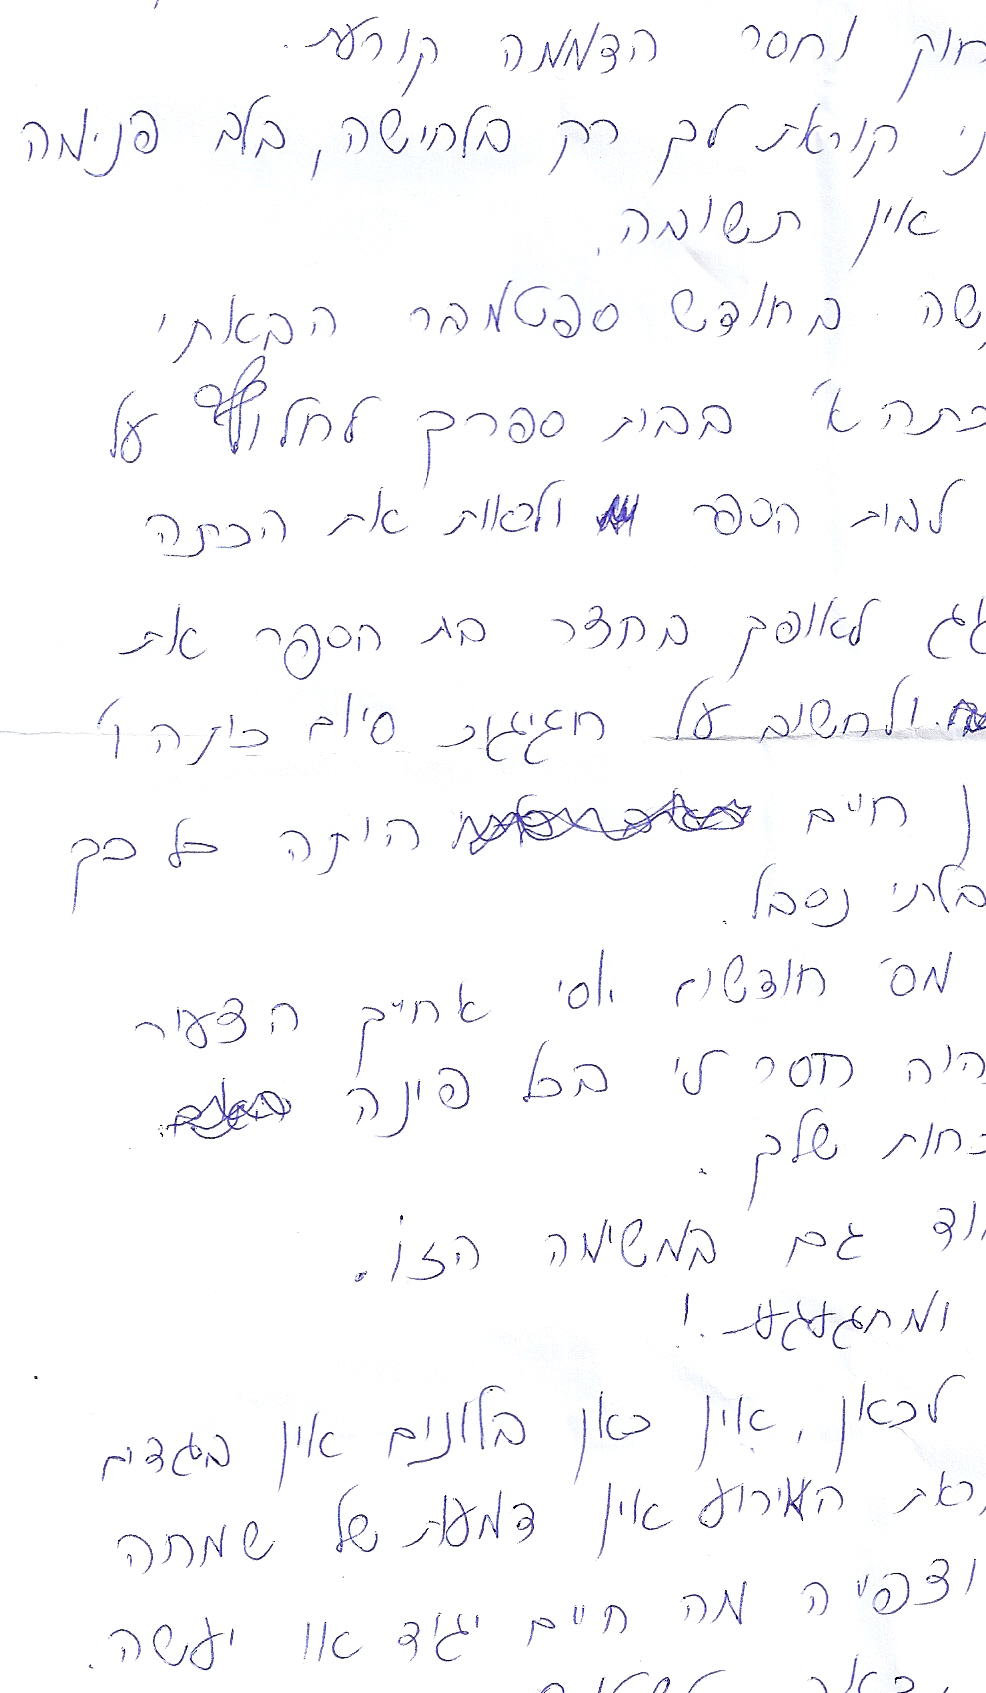 חוק וחסר הדממה קורעת.
ני קוראת לך רק בלחישה, בלב פנימה
אין תשובה.
שה בחודש ספטמבר הבאתי
כתה א' בבית ספרך לחלוף על
לבית הספר ולראות את הכתה
לאופק בחצר בת הספר את
ולחשוב על חגיגת סיום כיתה ו'
ן חיים היתה כל כך
בלתי נסבל.
מס' חודשים יוסי אחיך הצעיר
היה חסר לי בכל פינה
כחות שלך.
וד גם במשימה הזו.
ומתגעגעת.!
לכאן, אין כאן בלונים אין בגדים
ראת האירוע אין דמעות של שמחה
וצפייה מה חיים יגיד או יעשה.